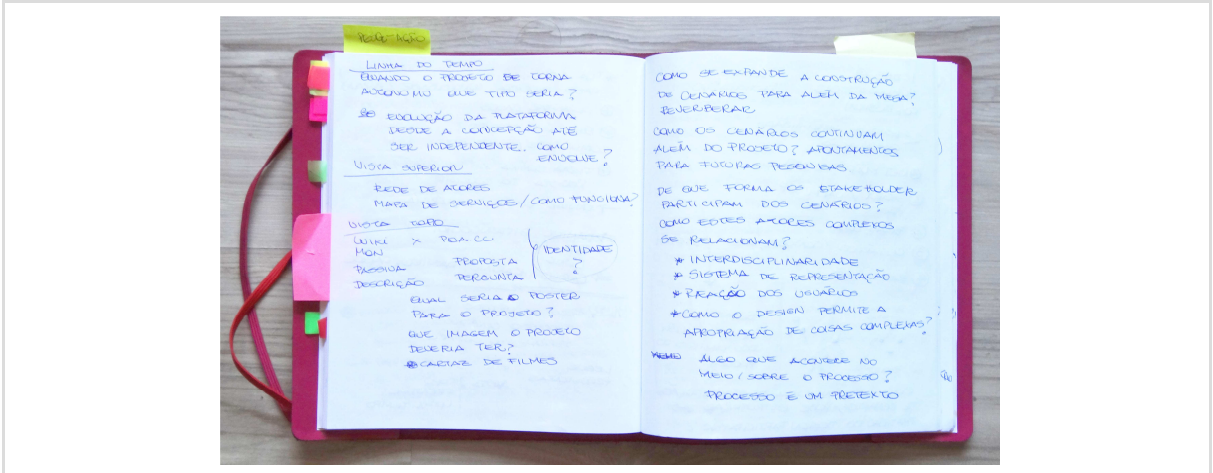 LINHA DO TEMPO
QUANDO O PROJETO SE TORNA
AUTONOMO QUE TIPO SERIA?
EVOLUÇÃO DA PLATAFORMA
DESDE A CONCEPÇÃO ATÉ
SER INDEPENDENTE. COMO
ENVOLVE?
VISTA SUPERIOR
REDE DE ATORES
MAPA DE SERVIÇOS / COMO FUNCIONA?
VISTA TOPO
WIKI X
PASSIVA PROPOSTA
DESCRIÇÃO PERGUNTA
IDENTIDADE
?
QUAL SERIA O POSTER
PARA O PROJETO?
QUE IMAGEM O PROJETO
DEVERIA TER?
* CARTAZ DE FILMES
COMO SE EXPANDE A CONSTRUÇÃO
DE CENÁRIOS PARA ALÉM DA MESA?
REVERBERAR
COMO OS CENÁRIOS CONTINUAM
ALÉM DO PROJETO? APONTAMENTOS
PARA FUTURAS PESQUISAS
DE QUE FORMA OS STAKEHOLDER
PARTICIPAM DOS CENÁRIOS?
COMO ESTES ATORES COMPLEXOS
SE RELACIONAM?
* INTERDISCIPLINARIDADE
* SISTEMA DE REPRESENTAÇÃO
* REAÇÃO DOS USUÁRIOS
* COMO O DESIGN PERMITE A
APROPRIAÇÃO DE COISAS COMPLEXAS?
ALGO QUE ACONTECE NO
MEIO / SOBRE O PROCESSO?
PROCESSO É UM PRETEXTO